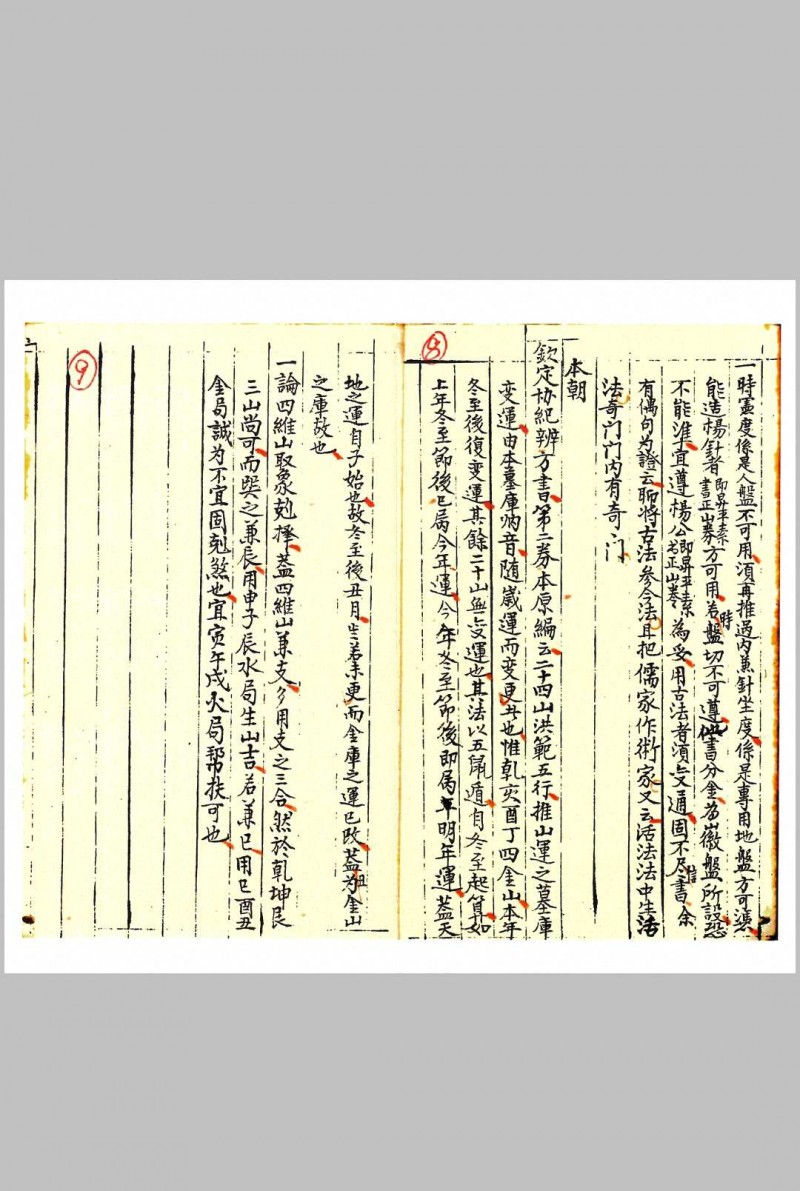 8
一時憲度係是人盤不可用須再推過內蕉針坐度係是專用地盤方可
能造楊針者即昇平素書正山券方可用若時盤切不可遵他書分金為徽盤所設恐
不能準宜遵楊公即昇平素書正山卷為妥用古法者須変通固不尽信書余
有偶句为證云聊將古法參今法且把儒家作術家又云活法法中生活
法奇門門內有奇門
本朝
欽定協紀辨方書第二券本原編云二十四山洪範五行推山運之墓庫
变運由本墓庫納音随歲運而变更也惟乹亥酉丁四金山本年
冬至後復变運其餘二十山無変運也其法以五鼠遁自冬至起算如
上年冬至節後已屬今年運今年冬至節後即屬明年運蓋天
9
地之運自子始也故冬至後丑月更而金庫之運已改蓋丑为金山
之庫故也
一論四維山取象尅擇蓋四維山兼支多用支之三合然於乾坤艮
三山尚可而巽之兼辰用申子辰水局生山吉若兼巳用巳酉丑
金局誠为不宜固尅煞也宜寅午戌火局幫扶可也